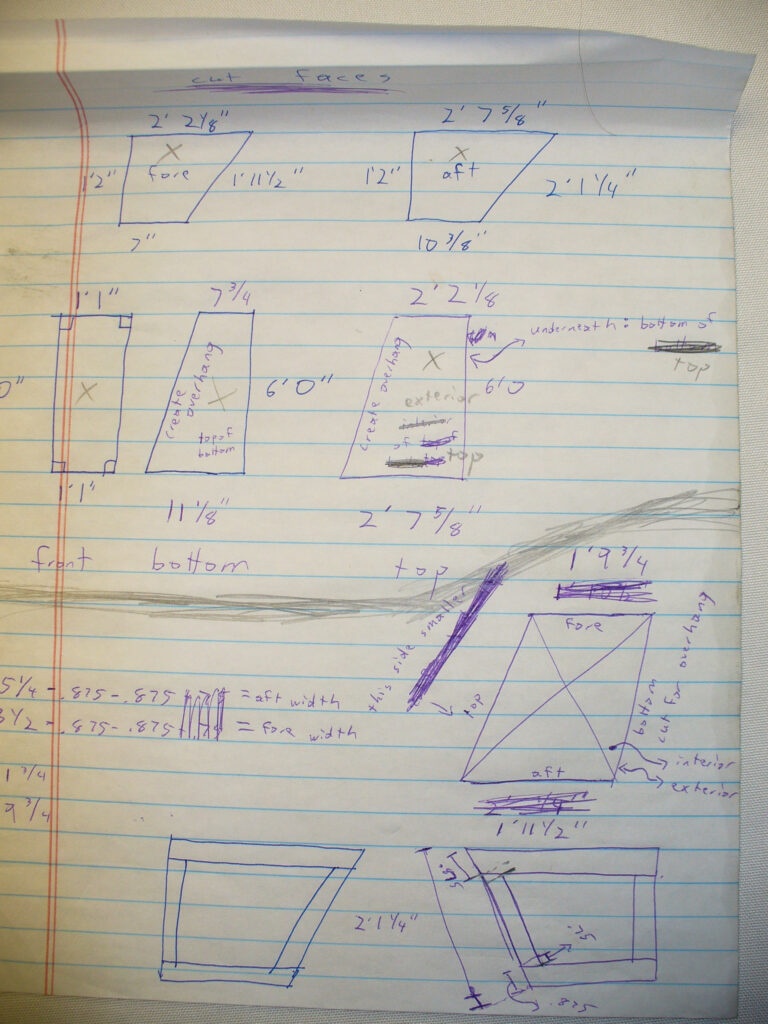 cut faces
2' 2 1/8" 2' 7 5/8"
1'2" fore 1' 11 1/2" 1'2" aft 2' 1 1/4"
7" 10 3/8"
1' 1" 7 3/4 2' 2 1/8
underneath: bottom of
top
0" create overhang 6' 0" create overhang 6'0
exterior
interior
top
bottom
of
top
1' 1"
11 1/8" 2' 7 5/8"
front bottom top
1' 9 3/4
this side smaller
fore
top
bottom
cut for overhang
5 1/4 - .825 - .825 = aft width
3 1/2 - .825 - .825 = fore width
interior
exterior
aft
1 3/4
9 3/4
1' 11 1/2"
2' 1 1/4"
.75
.825